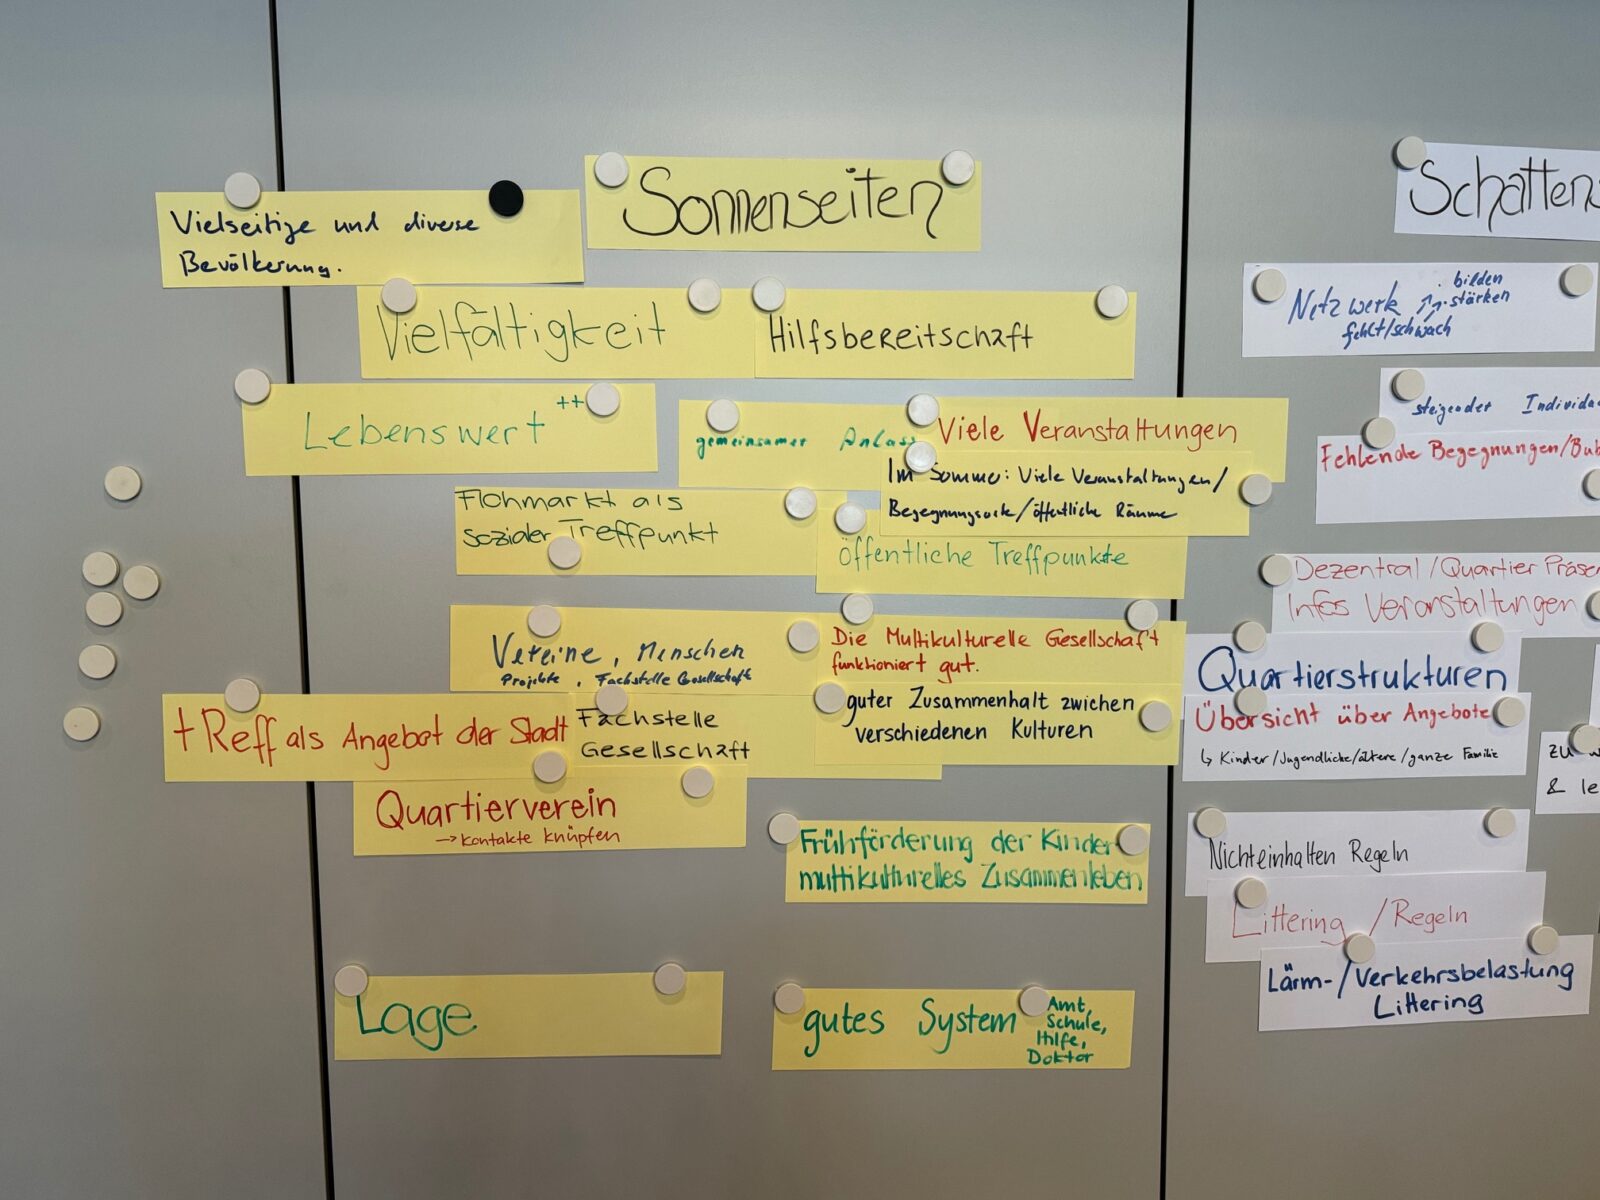 Sonnenseiten
Vielseitige und diverse
Bevölkerung.
Vielfältigkeit
Hilfsbereitschaft
Lebenswert ++
gemeinsamer Anlass
Viele Veranstaltungen
Im Somme: Viele Veranstaltungen/
Begegnungsorte/öffentliche Räume
Flohmarkt als
sozialer Treffpunkt
öffentliche Treffpunkte
Vereine, Menschen
Projekte, Fachstelle Gesellschaft
Die Multikulturelle Gesellschaft
funktioniert gut.
guter Zusammenhalt zwichen
verschiedenen Kulturen
tReff als Angebot der Stadt
Fachstelle
Gesellschaft
Quartierverein
→ Kontakte knüpfen
Frühförderung der Kinder
multikulturelles Zusammenleben
Lage
gutes System
Amt,
Schule,
Hilfe,
Doktor
Schattens
Netzwerk
bilden
stärken
fehlt/schwach
steigender Individua
Fehlende Begegnungen/Bub
Dezentral/Quartier Präsen
Infos Veranstaltungen
Quartierstrukturen
Übersicht über Angebote
↳ Kinder/Jugendliche/ältere/ganze Familie
zu w
& le
Nichteinhalten Regeln
Littering/Regeln
Lärm-/Verkehrsbelastung
Littering